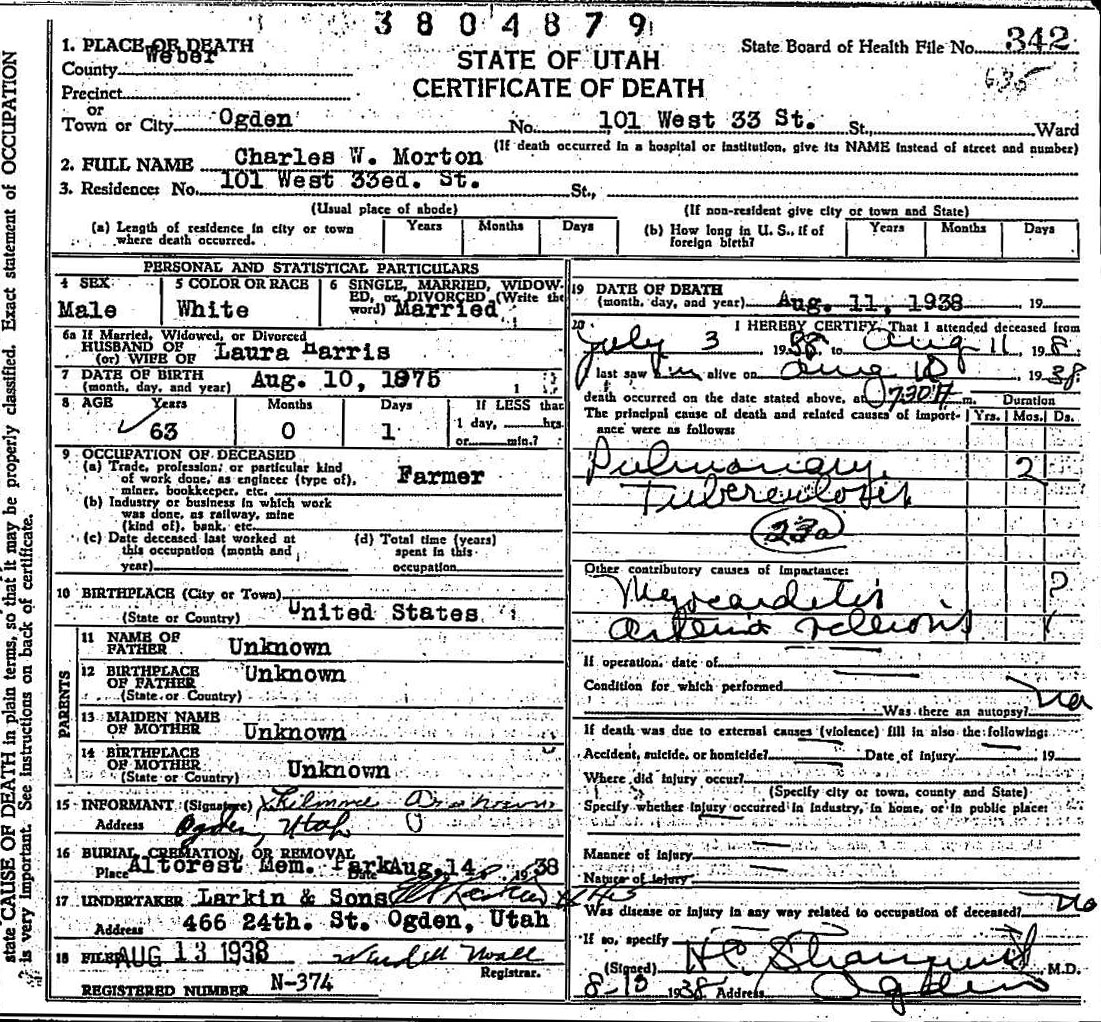 3804879
1. PLACE OF DEATH
STATE OF UTAH
CERTIFICATE OF DEATH
State Board of Health File No. 342
635
County Weber
Precinct
or
Town or City Ogden No. 101 West 33 St. St., Ward
(If death occurred in a hospital or institution, give its NAME instead of street and number)
2. FULL NAME Charles W. Morton
3. Residence: No. 101 West 33ed. St. St.,
(Usual place of abode) (If non-resident give city or town and State)
(a) Length of residence in city or town where death occurred. Years Months Days
(b) How long in U. S., if of foreign birth? Years Months Days
PERSONAL AND STATISTICAL PARTICULARS
4 SEX Male
5 COLOR OR RACE White
6 SINGLE, MARRIED, WIDOWED, or DIVORCED (Write the word) Married
6a If Married, Widowed, or Divorced
HUSBAND OF
(or) WIFE OF Laura Harris
7 DATE OF BIRTH
(month, day, and year) Aug. 10, 1875
8 AGE Years Months Days If LESS than
63 0 1 1 day, hrs.
or min.?
9 OCCUPATION OF DECEASED
(a) Trade, profession, or particular kind
of work done, as engineer (type of),
miner, bookkeeper, etc. Farmer
(b) Industry or business in which work
was done, as railway, mine
(kind of), bank, etc.
(c) Date deceased last worked at
this occupation (month and
year)
(d) Total time (years)
spent in this
occupation
10 BIRTHPLACE (City or Town)
(State or Country) United States
PARENTS
11 NAME OF
FATHER Unknown
12 BIRTHPLACE
OF FATHER Unknown
(State or Country)
13 MAIDEN NAME
OF MOTHER Unknown
14 BIRTHPLACE
OF MOTHER
(State or Country) Unknown
15 INFORMANT (Signature)
Address Ogden, Utah
16 BURIAL, CREMATION, OR REMOVAL
Place Altorest Mem. Park Date Aug. 14 1938
17 UNDERTAKER Larkin & Sons
Address 466 24th. St. Ogden, Utah
18 FILED AUG 13 1938
Registrar.
REGISTERED NUMBER N-374
19 DATE OF DEATH
(month, day, and year) Aug. 11, 1938 19
20 I HEREBY CERTIFY, That I attended deceased from
July 3 1938, to Aug 11, 1938.
I last saw him alive on Aug 10 1938.
death occurred on the date stated above, at 730 A m. Duration
The principal cause of death and related causes of importance were as follows: Yrs. Mos. Ds.
Pulmonary 2
Tuberculosis
23a
Other contributory causes of importance:
Myocarditis ?
If operation, date of
Condition for which performed
Was there an autopsy? No
If death was due to external causes (violence) fill in also the following:
Accident, suicide, or homicide? Date of injury 19
Where did injury occur?
(Specify city or town, county and State)
Specify whether injury occurred in industry, in home, or in public place:
Manner of injury
Nature of injury
Was disease or injury in any way related to occupation of deceased? No
If so, specify
(Signed) M.D.
1938 Address Ogden
state CAUSE OF DEATH in plain terms, so that it may be properly classified. Exact statement of OCCUPATION
is very important. See instructions on back of certificate.